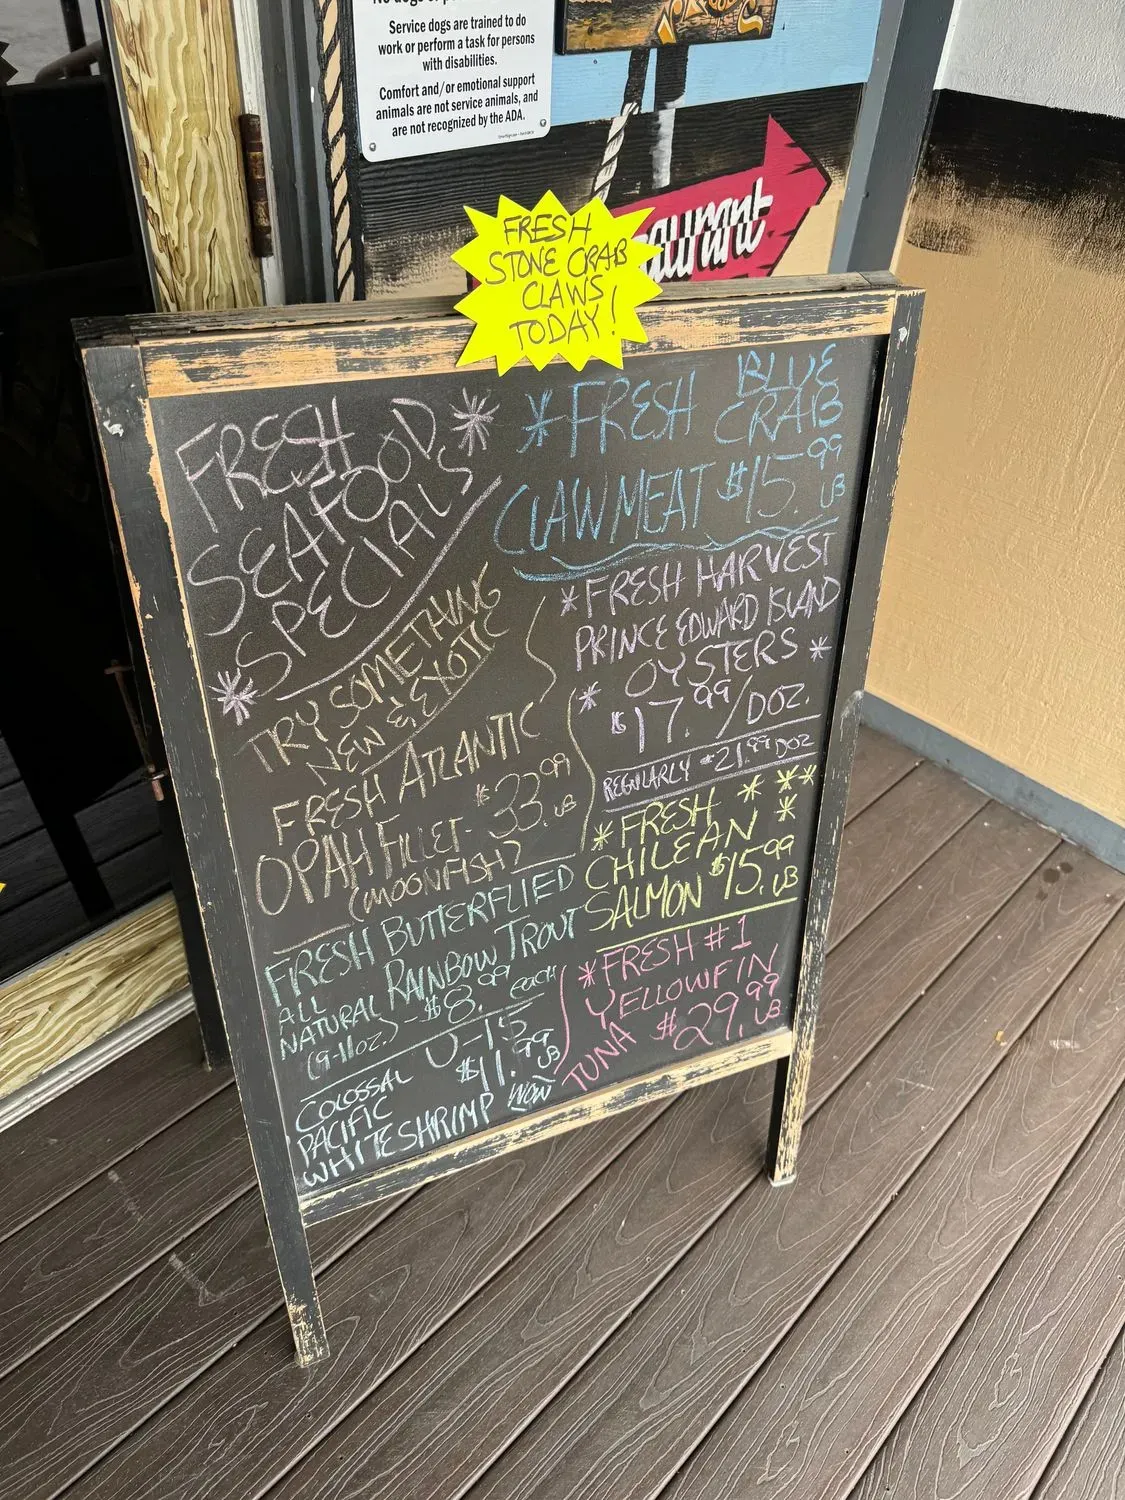 Service dogs are trained to do
work or perform a task for persons
with disabilities.
Comfort and/or emotional support
animals are not service animals, and
are not recognized by the ADA.
FRESH
STONE CRAB
CLAWS
TODAY!
FRESH
SEAFOOD
SPECIALS
TRY SOMETHING
NEW & EXOTIC
FRESH ATLANTIC
OPAH FILLET- $33.99 LB
(MOONFISH)
FRESH BUTTERFLIED
ALL
NATURAL RAINBOW TROUT
(9-11oz.) - $8.99 each
COLOSSAL U-15
PACIFIC $11.99 LB
WHITE SHRIMP WOW
*FRESH BLUE
CRAB
CLAWMEAT $15.99 LB
*FRESH HARVEST
PRINCE EDWARD ISLAND
OYSTERS *
* $17.99/DOZ.
REGULARLY $21.99 DOZ
*FRESH * **
CHILEAN *
SALMON $15.99 LB
*FRESH #1
YELLOWFIN
TUNA $29.99 LB